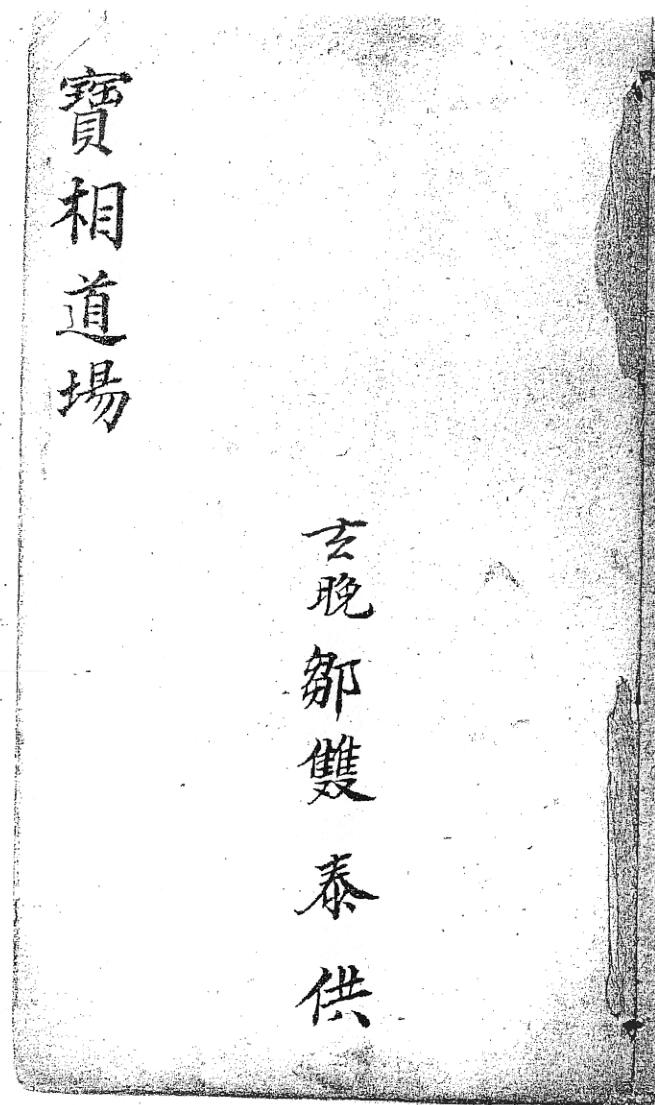 寶相道場
玄晚鄒雙泰供